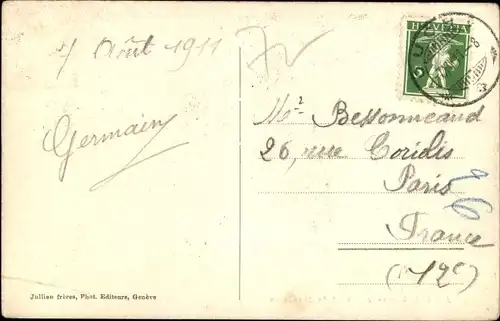 Août 1911
HELVETIA
5
Germain
Mr Bessonneaud
26, rue Coriolis
Paris
France
(12e)
Jullien frères, Phot. Editeurs, Genève